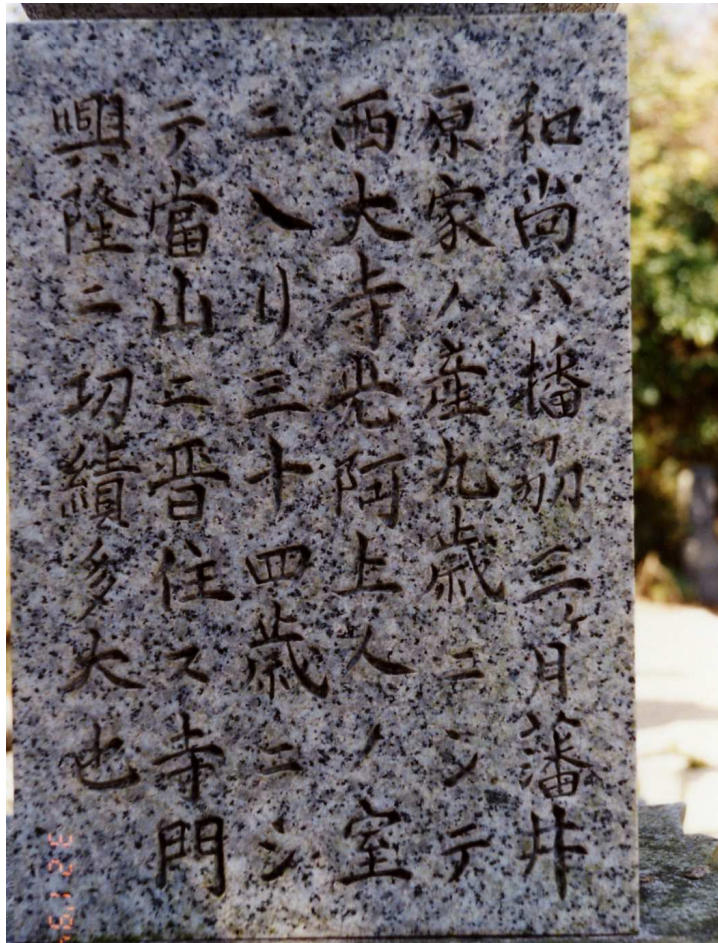 和尚ハ播刕三ケ月藩片
原家ノ産九歳ニシテ
西大寺光阿上人ノ室
ニ入リ三十四歳ニシ
テ當山ニ晋住ス寺門
興隆ニ功績多大也